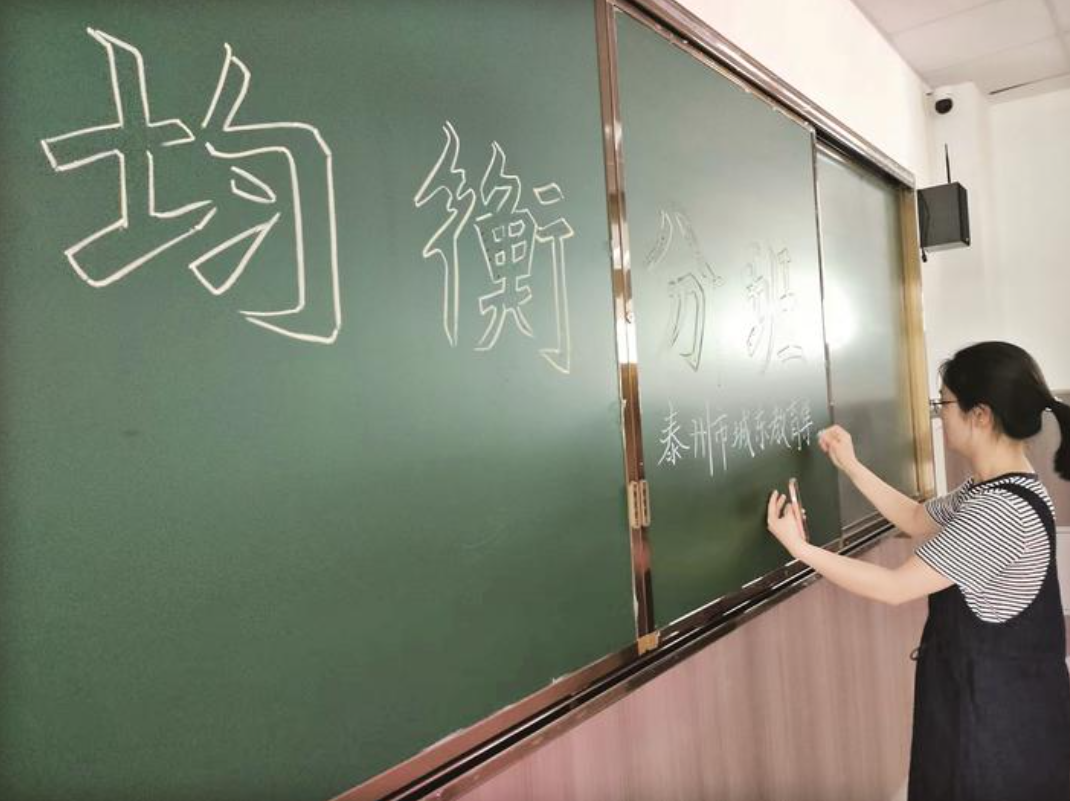 均衡分班
泰州市城东教育集